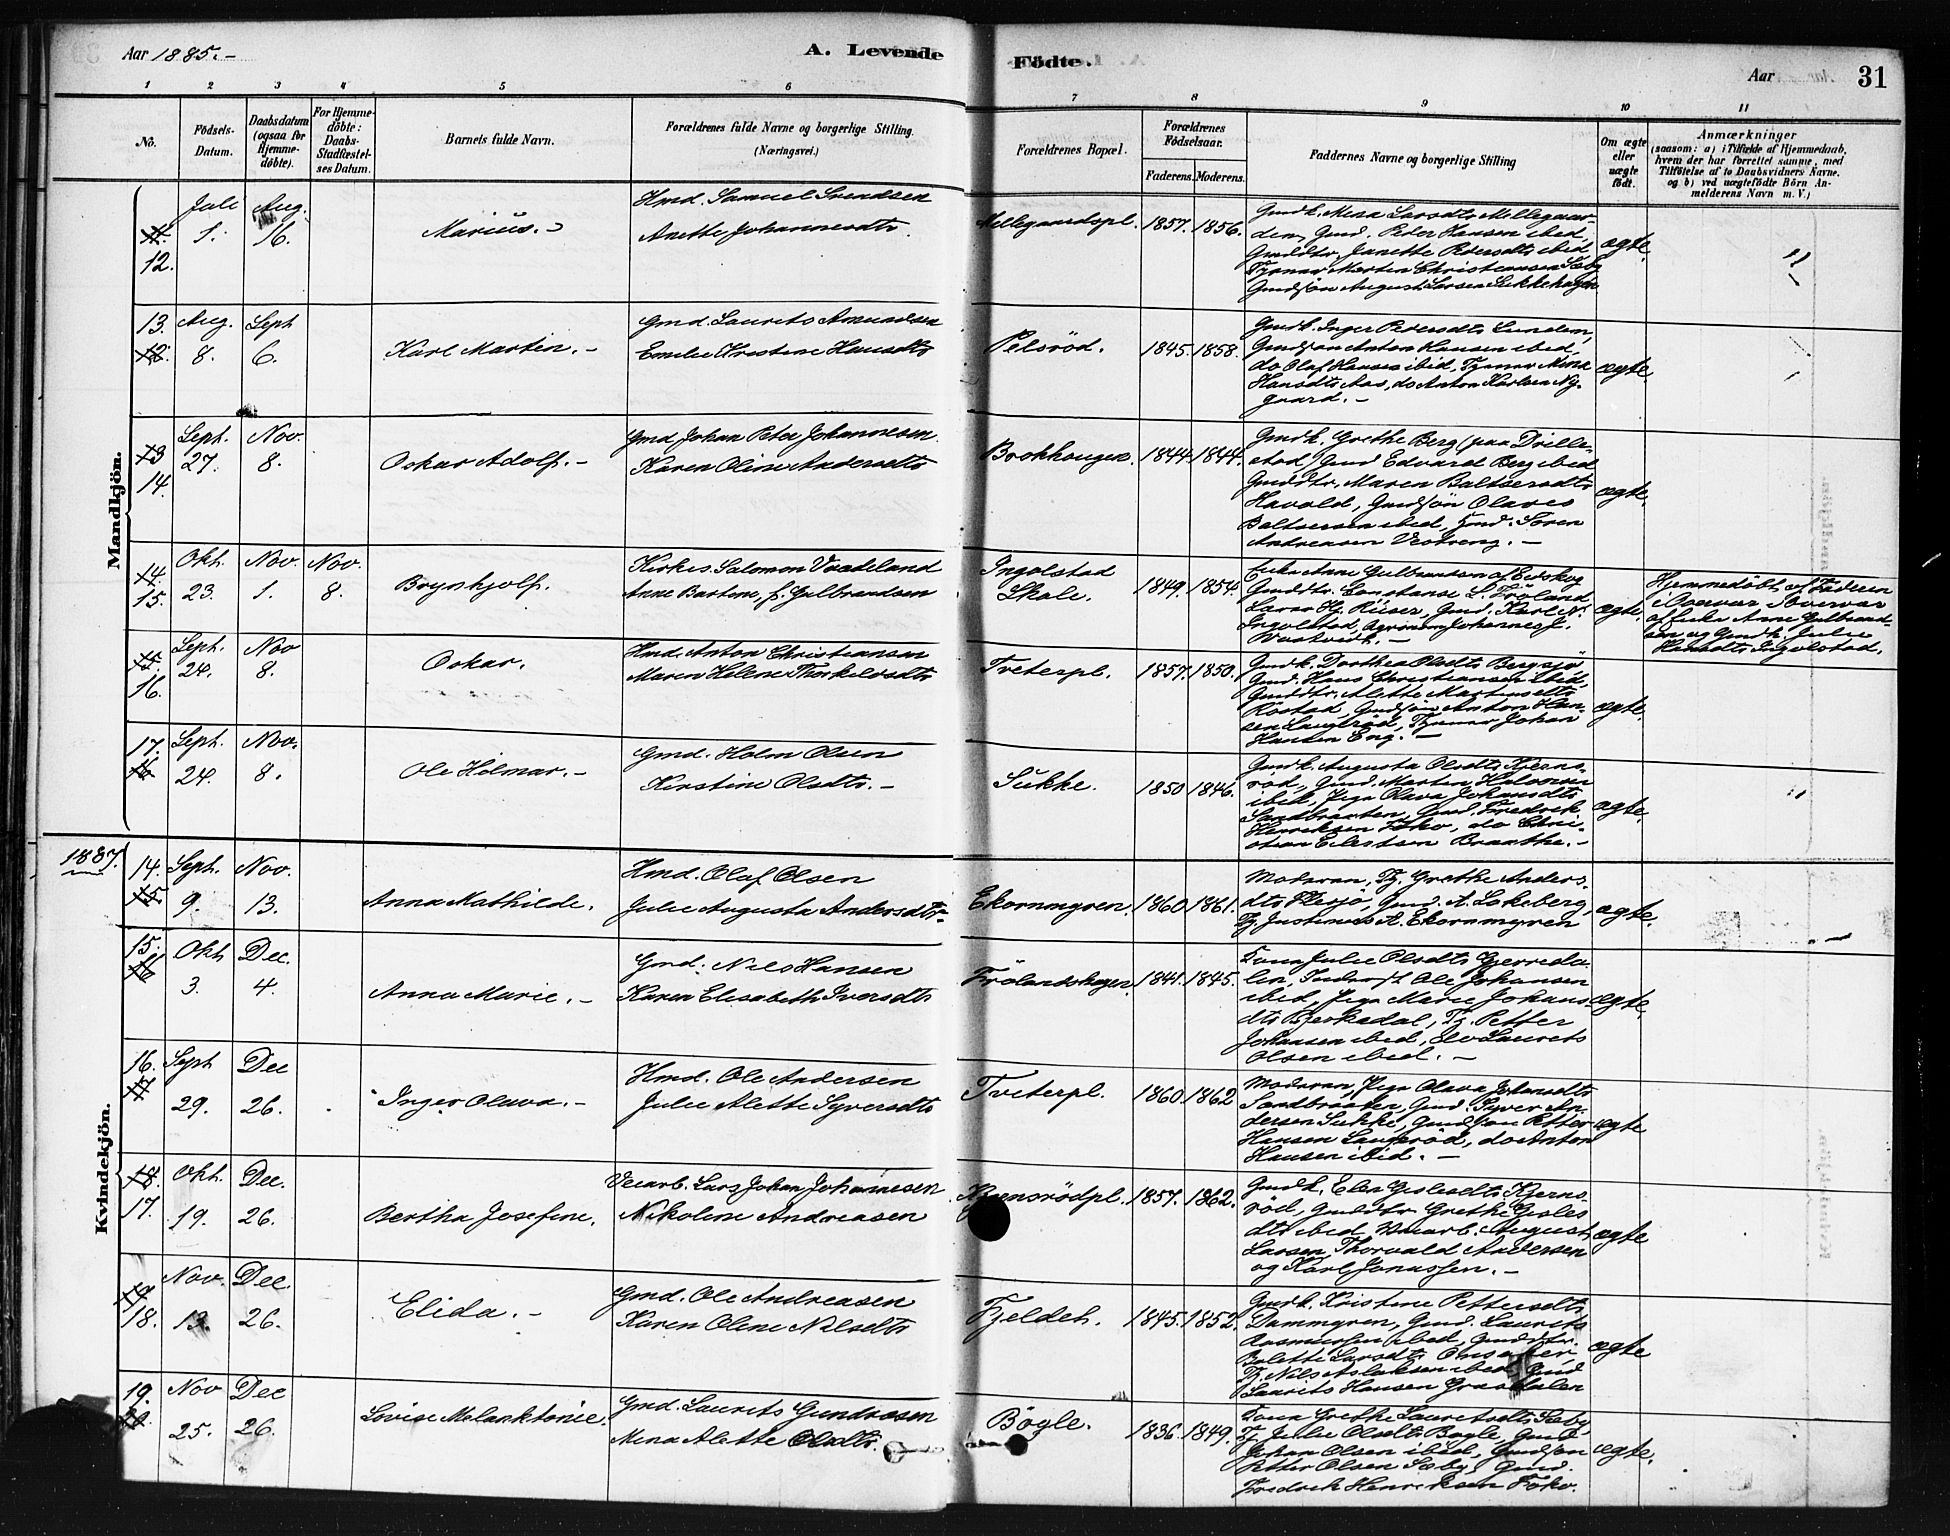 Aar 1885.-
A. Levende
Födte.
Aar
31
1 2 3 4 5 6 7 8 9 10 11
No.
Födsels-
Datum.
Daabsdatum
(ogsaa for
Hjemme-
döbte).
For Hjemme-
döbte:
Daabs-
Stadfæstel-
ses Datum.
Barnets fulde Navn.
Forældrenes fulde Navne og borgerlige Stilling.
(Næringsvei.)
Forældrenes Bopæl.
Forældrenes
Födselsaar.
Faderens. Moderens.
Faddernes Navne og borgerlige Stilling
Om ægte
eller
uægte
født.
Anmærkninger
(saasom: a) i Tilfælde af Hjemmedaab,
hvem der har forrettet samme, med
Tilföielse af to Daabsvidners Navne.
og b) ved uægtefödte Börn An-
melderens Navn m. V.)
Mandkjön.
12. Juli 1. Aug. 16.
Marius.-
Hmd. Samuel Svendsen
Anette Johannesdtr.
Mellegaardspl. 1857. 1856.
Gmdk. Mina Larsdtr Mellegaar-
den, Gmd. Peder Hansen ibid,
Gmddtr. Janette Pedersdtr ibid,
Tjener Morten Christiansen Sæby
Gmdsøn August Larsen Sukkehagen
ægte.
13. Aug. 8. Sept 6.
Karl Martin.-
Gmd. Laurits Amundsen
Emilie Kristine Hansdtr
Pelsröd. 1845. 1858.
Gmdk. Inger Pedersdtr Lunden,
Gmdsøn Anton Hansen ibid,
do Olaf Hansen ibid, Tjener Mina
Hansdtr Aas, do Anton Karlsen Ny-
gaard.-
ægte.
14. Sept. 27. Nov. 8.
Oskar Adolf.-
Gmd Johan Peter Johannesen.
Karen Oline Andersdtr
Brokhougen. 1844. 1844.
Gmdk. Grethe Berg (paa Drille-
stad) Gmd Edvard Berg ibid
Gmddtr. Maren Baltsersdtr
Havold, Gmdsøn Olaves
Baltsersen ibid, Gmd. Sören
Andreasen Vestreng.-
ægte.
15. Okt. 23. Nov. 1. Nov. 8.
Brynhjolf.
Kirkes. Salomon Vradeland
Anne Bartine, f. Gulbrandsen
Ingolstad
Skole. 1849. 1854.
Enke Anne Gulbrandsen af Eidskog
Gmddtr. Constanse L. Fröland
Lærer H. Riiser, Gmd. Karl N.
Ingolstad, Agronom Johannes J.
ægte.
Hjemmedöbt af Faderen
af Enke Anne Gulbrand-
sen og Gmdk. Julie
Hansdtr Ingolstad.
16. Sept. 24. Nov 8.
Oskar.
Hmd. Anton Christiansen
Maren Helene Thorkildsdtr
Tveterpl. 1857. 1850.
Gmdk. Dorthea Olsdtr Bergsjö
Gmd. Hans Christiansen ibid,
Gmddtr. Alette Martinsdtr
Röstad, Gmdsøn Anton Han-
sen Langeröd, Tjener Johan
Hansen Eng.-
ægte.
17. Sept. 24. Nov. 8.
Ole Hilmar.-
Gmd. Holm Olsen
Kirstine Olsdtr.-
Sukke. 1850 1846.
Gmdk. Augusta Olsdtr Kjerns-
röd, Gmd. Martin Halvorsen
ibid, Pige Olava Johansdtr
Sandbraaten, Gmd. Fredrik
Henriksen Foko, do Chri-
stian Eilertsen Braathe.-
ægte.
1887.
Kvindekjön.
14. Sept. 9. Nov. 13.
Anna Mathilde.
Hmd. Olaf Olsen
Julie Augusta Andersdtr.-
Ekornmyren. 1860. 1861.
Moderen, Tj. Grethe Anders-
dtr Flesjö, Gmd. A. Lakeberg,
Tj. Justinus A. Ekornmyren
ægte.
15. Okt 3. Dec. 4.
Anna Marie.-
Gmd. Nils Hansen
Karen Elisabeth Iversdtr
Frölandskogen. 1841. 1845.
Kona Julie Olsdtr Gjerreda-
len, Inderst Ole Johansen
ibid, Pige Marie Johans-
dtr Bjerkedal, Tj. Petter
Johansen ibid, do Laurits
Olsen ibid.-
ægte.
16. Sept 29. Dec 26.
Inger Olava.-
Hmd. Ole Andersen
Julie Alette Syversdtr
Tveterpl. 1860. 1862
Moderen, Pige Olava Johansdtr
Sandbraaten, Gmd. Syver An-
dersen Sukke, Gmdsøn Petter
Hansen Langeröd, do Anton
Hansen ibid.-
ægte
17. Okt. 19. Dec. 26.
Bertha Josefine.
Veiarb. Lars Johan Johannesen
Nikoline Andreasen
Kjernsrödpl. 1857. 1862.
Gmdk. Elen Gislesdtr Kjerns-
röd, Gmddtr Grethe Gisles
dtr ibid Veiarb. August
Larsen, Thorvald Andersen
og Karl Jonassen.-
ægte
18. Nov. 13. Dec. 26.
Elida.-
Gmd. Ole Andreasen
Karen Oline Nilsdtr
Fjeldet. 1845. 1852.
Gmdk. Kristine Pettersdtr
Dammyren, Gmd. Laurits
Rasmussen ibid, Gmddtr.
Bolette Larsdtr Omsæter,
Tj. Nils Aslaksen ibid, Gmd
Laurits Hansen Grasdalen
ægte
19. Nov 25. Dec 26.
Lovise Melanktonie.
Gmd. Laurits Gundersen
Mina Alette Olsdtr.
Bögle. 1836. 1849.
Kona Grethe Lauritsdtr Sæby,
Tj. Julie Olsdtr Bogle, Gmd
Johan Olsen ibid, Gmdsøn
Petter Olsen Sæby, Gmd.
Fredrik Henriksen Foko.
ægte.